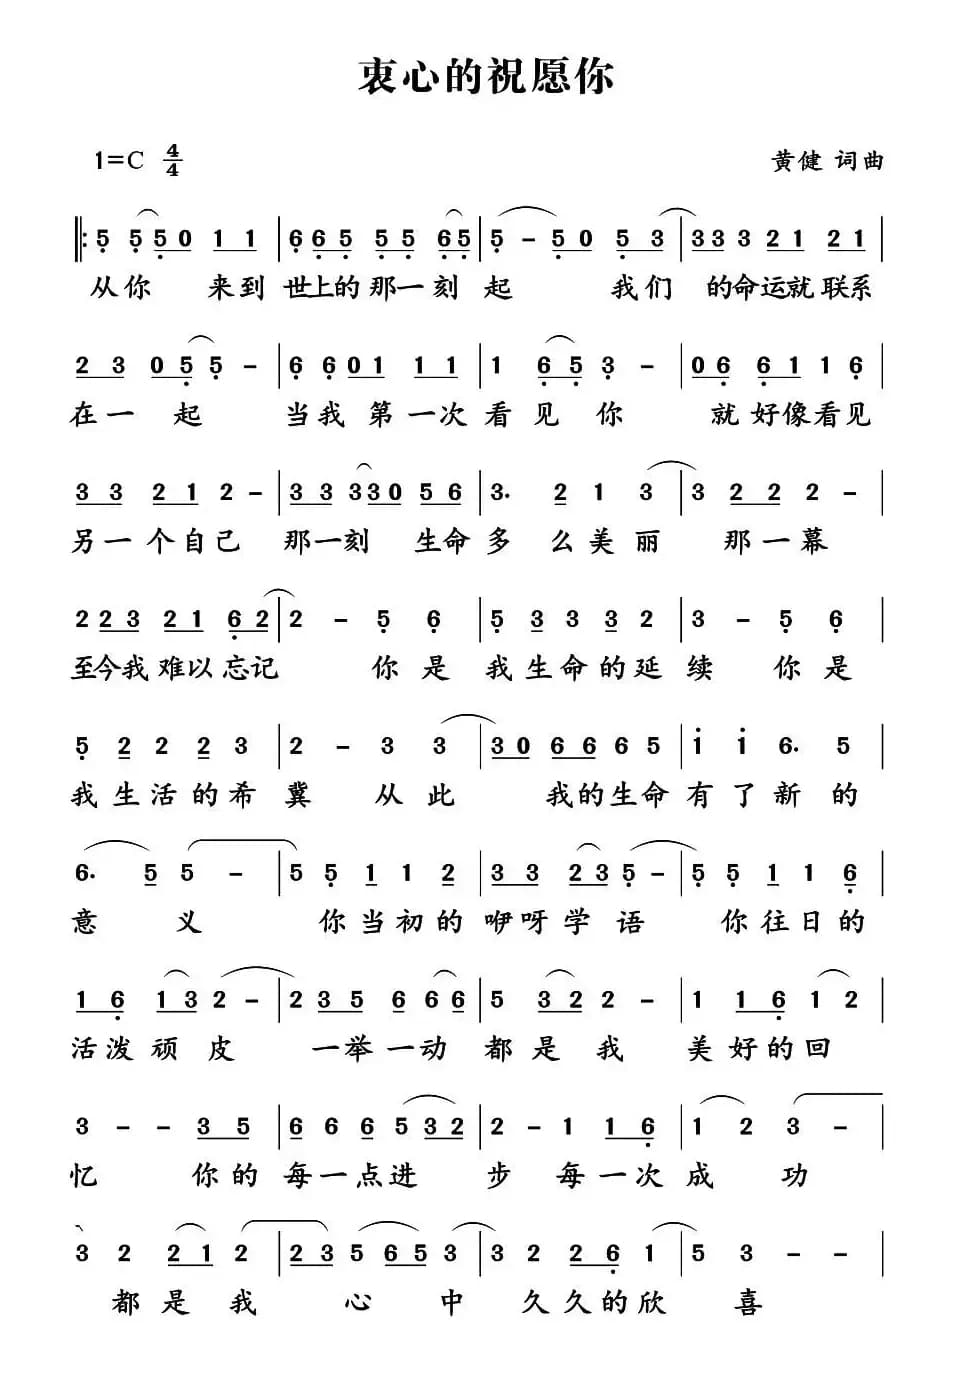 衷心的祝愿你
1=C 4/4 黄健 词曲
5 5 5 0 1 1 | 6 6 5 5 5 6 5 | 5 - 5 0 5 3 | 3 3 3 2 1 2 1 |
从你 来到 世上的那一刻 起 我们 的命运就联系
2 3 0 5 5 - | 6 6 0 1 1 1 | 1 6 5 3 - | 0 6 6 1 1 6 |
在一 起 当我 第一次 看见 你 就好像看见
3 3 2 1 2 - | 3 3 3 3 0 5 6 | 3. 2 1 3 | 3 2 2 2 - |
另一个自己 那一刻 生命 多 么美丽 那一幕
2 2 3 2 1 6 2 | 2 - 5 6 | 5 3 3 3 2 | 3 - 5 6 |
至今我难以忘记 你是 我生命的延 续 你是
5 2 2 2 3 | 2 - 3 3 | 3 0 6 6 6 5 | 1 1 6. 5 |
我生活的希 冀 从此 我的生命 有了新的
6. 5 5 - | 5 5 1 1 2 | 3 3 2 3 5 - | 5 5 1 1 6 |
意 义 你当初的 咿呀学语 你往日的
1 6 1 3 2 - | 2 3 5 6 6 6 | 5 3 2 2 - | 1 1 6 1 2 |
活泼顽皮 一举一动 都是我 美好的回
3 - - 3 5 | 6 6 6 5 3 2 | 2 - 1 1 6 | 1 2 3 - |
忆 你的 每一点进 步 每一次 成功
3 2 2 1 2 | 2 3 5 6 5 3 | 3 2 2 6 1 | 5 3 - - |
都是我 心中 久久的欣 喜